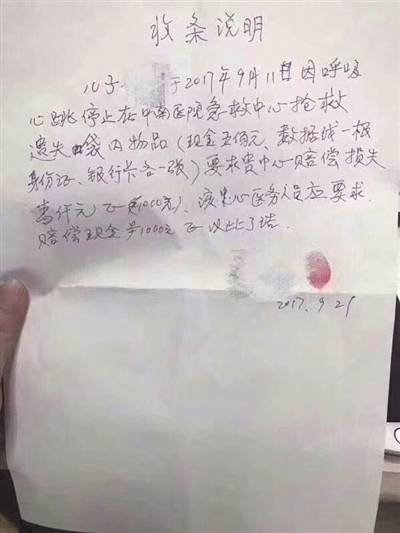 收条说明
儿子 于2017年9月11日因呼吸
心跳停止在中南医院急救中心抢救
遗失袋内物品(现金五佰元、数据线一根
身份证、银行卡各一张)要求贵中心赔偿损失
壹仟元正(1000元)、该中心医务人员应要求
赔偿现金1000元正以此了结.
2017.9.21